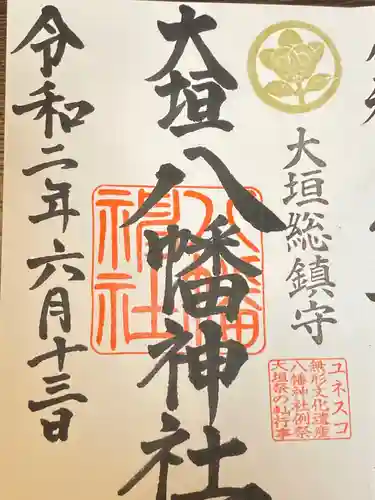 大垣総鎮守
ユネスコ
無形文化遺産
八幡神社例祭
大垣祭の軕行事
大垣八幡神社
令和二年六月十三日